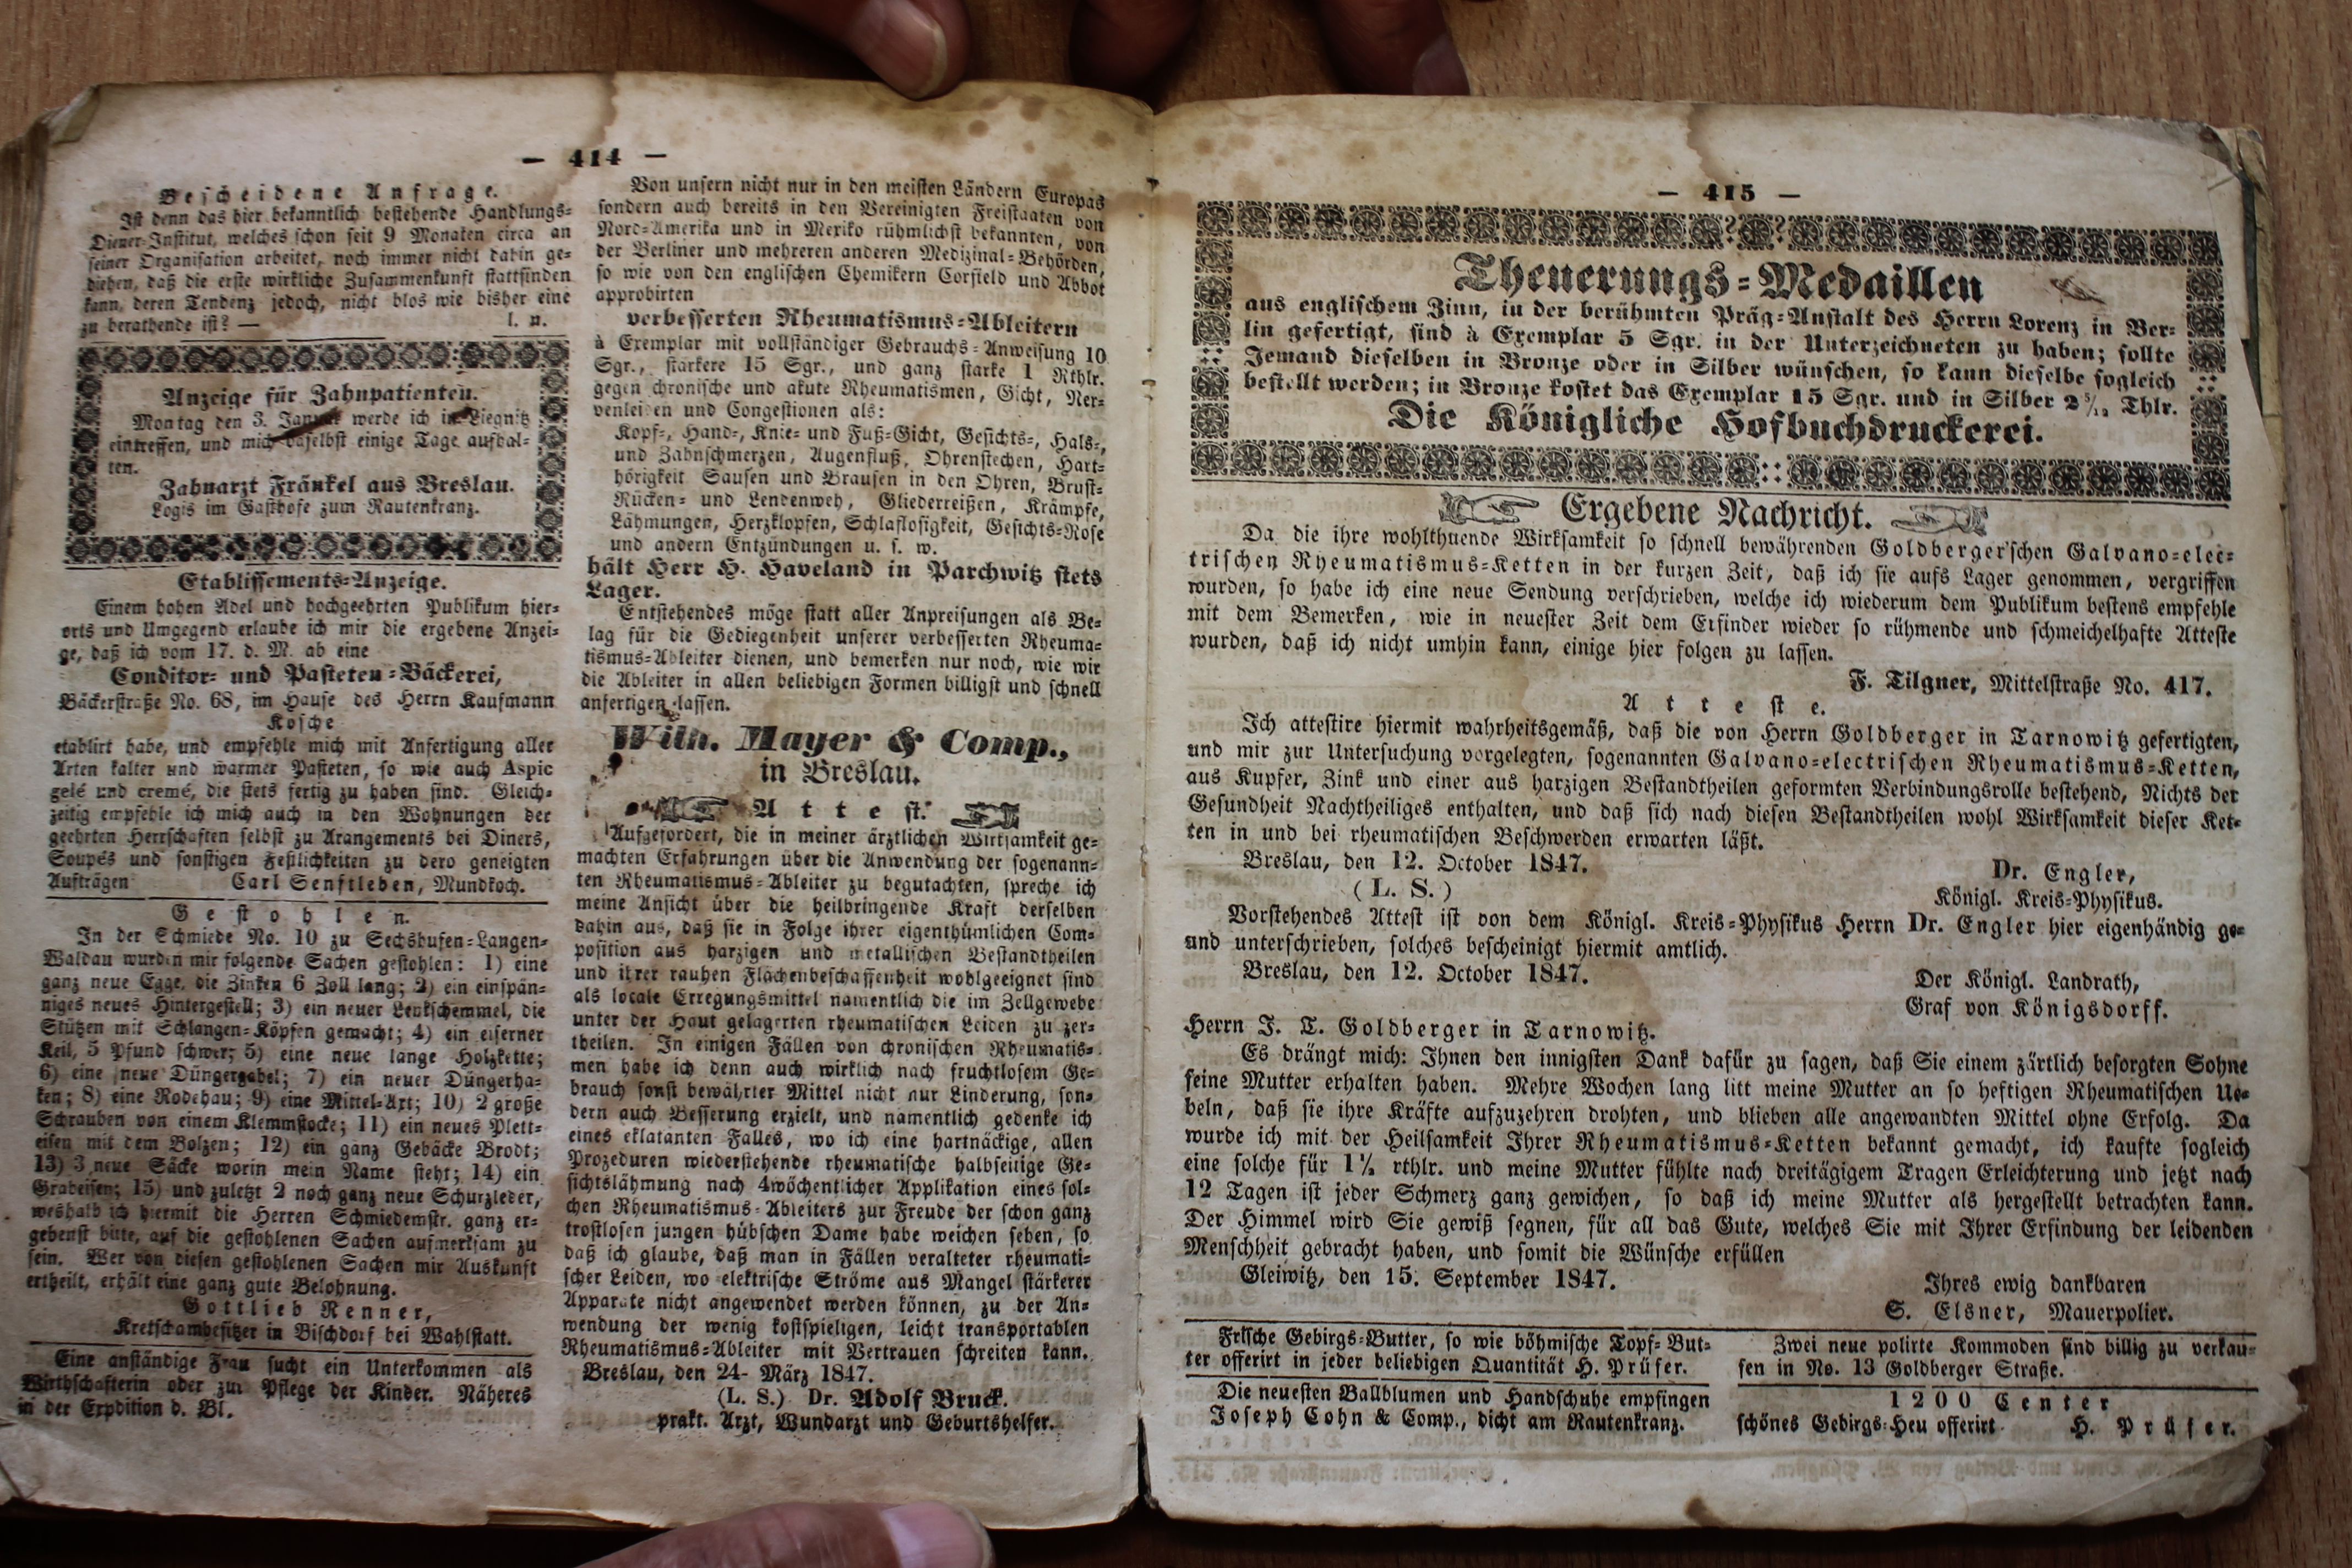 — 414 —
Bescheidene Anfrage.
Ist denn das hier bekanntlich bestehende Handlungs-
Diener-Institut, welches schon seit 9 Monaten circa an
seiner Organisation arbeitet, noch immer nicht dahin ge-
diehen, daß die erste wirkliche Zusammenkunft stattfinden
kann, deren Tendenz jedoch, nicht blos wie bisher eine
zu berathende ist? — l. n.
Anzeige für Zahnpatienten.
Montag den 3. Januar werde ich in Liegnitz
eintreffen, und mich daselbst einige Tage aufhal-
ten.
Zahnarzt Fränkel aus Breslau.
Logis im Gasthofe zum Rautenkranz.
Etablissements-Anzeige.
Einem hohen Adel und hochgeehrten Publikum hier-
orts und Umgegend erlaube ich mir die ergebene Anzei-
ge, daß ich vom 17. d. M. ab eine
Conditor- und Pasteten-Bäckerei,
Bäckerstraße No. 68, im Hause des Herrn Kaufmann
Kosche
etablirt habe, und empfehle mich mit Anfertigung aller
Arten kalter und warmer Pasteten, so wie auch Aspic
gelé und cremé, die stets fertig zu haben sind. Gleich-
zeitig empfehle ich mich auch in den Wohnungen der
geehrten Herrschaften selbst zu Arangements bei Diners,
Soupés und sonstigen Festlichkeiten zu dero geneigten
Aufträgen Carl Senftleben, Mundkoch.
Gestohlen.
In der Schmiede No. 10 zu Sechshufen-Langen-
Waldau wurden mir folgende Sachen gestohlen: 1) eine
ganz neue Egge, die Zinken 6 Zoll lang; 2) ein einspän-
niges neues Hintergestell; 3) ein neuer Lenkschemmel, die
Stützen mit Schlangen-Köpfen gemacht; 4) ein eiserner
Keil, 5 Pfund schwer; 5) eine neue lange Holzkette;
6) eine neue Düngergabel; 7) ein neuer Düngerha-
ken; 8) eine Rodehau; 9) eine Mittel-Axt; 10) 2 große
Schrauben von einem Klemmstocke; 11) ein neues Plett-
eisen mit dem Bolzen; 12) ein ganz Gebäcke Brodt;
13) 3 neue Säcke worin mein Name steht; 14) ein
Grabeisen; 15) und zuletzt 2 noch ganz neue Schurzleder,
weshalb ich hiermit die Herren Schmiedemstr. ganz er-
gebenst bitte, auf die gestohlenen Sachen aufmerksam zu
sein. Wer von diesen gestohlenen Sachen mir Auskunft
ertheilt, erhält eine ganz gute Belohnung.
Gottlieb Renner,
Kretschambesitzer in Bischdorf bei Wahlstatt.
Eine anständige Frau sucht ein Unterkommen als
Wirthschafterin oder zur Pflege der Kinder. Näheres
in der Expdition d. Bl.
Von unsern nicht nur in den meisten Ländern Europas
sondern auch bereits in den Vereinigten Freistaaten von
Nord-Amerika und in Mexiko rühmlichst bekannten, von
der Berliner und mehreren anderen Medizinal-Behörden,
so wie von den englischen Chemikern Corsield und Abbot
approbirten
verbesserten Rheumatismus-Ableitern
à Exemplar mit vollständiger Gebrauchs-Anweisung 10
Sgr., stärkere 15 Sgr., und ganz starke 1 Rthlr.
gegen chronische und akute Rheumatismen, Gicht, Ner-
venleiden und Congestionen als:
Kopf-, Hand-, Knie- und Fuß-Gicht, Gesichts-, Hals-,
und Zahnschmerzen, Augenfluß, Ohrenstechen, Hart-
hörigkeit Sausen und Brausen in den Ohren, Brust-
Rücken- und Lendenweh, Gliederreißen, Krämpfe,
Lähmungen, Herzklopfen, Schlaflosigkeit, Gesichts-Rose
und andern Entzündungen u. s. w.
hält Herr H. Haveland in Parchwitz stets
Lager.
Entstehendes möge statt aller Anpreisungen als Be-
lag für die Gediegenheit unserer verbesserten Rheuma-
tismus-Ableiter dienen, und bemerken nur noch, wie wir
die Ableiter in allen beliebigen Formen billigst und schnell
anfertigen lassen.
Wilh. Mayer & Comp.,
in Breslau.
Attest.
Aufgefordert, die in meiner ärztlichen Wirksamkeit ge-
machten Erfahrungen über die Anwendung der sogenann-
ten Rheumatismus-Ableiter zu begutachten, spreche ich
meine Ansicht über die heilbringende Kraft derselben
dahin aus, daß sie in Folge ihrer eigenthümlichen Com-
position aus harzigen und metallischen Bestandtheilen
und ihrer rauhen Flächenbeschaffenheit wohlgeeignet sind
als locale Erregungsmittel namentlich die im Zellgewebe
unter der Haut gelagerten rheumatischen Leiden zu zer-
theilen. In einigen Fällen von chronischen Rheumatis-
men habe ich denn auch wirklich nach fruchtlosem Ge-
brauch sonst bewährter Mittel nicht nur Linderung, son-
dern auch Besserung erzielt, und namentlich gedenke ich
eines eklatanten Falles, wo ich eine hartnäckige, allen
Prozeduren wiederstehende rheumatische halbseitige Ge-
sichtslähmung nach 4wöchentlicher Applikation eines sol-
chen Rheumatismus-Ableiters zur Freude der schon ganz
trostlosen jungen hübschen Dame habe weichen sehen, so
daß ich glaube, daß man in Fällen veralteter rheumati-
scher Leiden, wo elektrische Ströme aus Mangel stärkerer
Apparate nicht angewendet werden können, zu der An-
wendung der wenig kostspieligen, leicht transportablen
Rheumatismus-Ableiter mit Vertrauen schreiten kann.
Breslau, den 24- März 1847.
(L. S.) Dr. Adolf Bruck.
prakt. Arzt, Wundarzt und Geburtshelfer.
— 415 —
Theuerungs-Medaillen
aus englischem Zinn, in der berühmten Präg-Anstalt des Herrn Lorenz in Ber-
lin gefertigt, sind à Exemplar 5 Sgr. in der Unterzeichneten zu haben; sollte
Jemand dieselben in Bronze oder in Silber wünschen, so kann dieselbe sogleich
bestellt werden; in Bronze kostet das Exemplar 15 Sgr. und in Silber 2 5/12 Thlr.
Die Königliche Hofbuchdruckerei.
Ergebene Nachricht.
Da die ihre wohlthuende Wirksamkeit so schnell bewährenden Goldberger'schen Galvano-elec-
trischen Rheumatismus-Ketten in der kurzen Zeit, daß ich sie aufs Lager genommen, vergriffen
wurden, so habe ich eine neue Sendung verschrieben, welche ich wiederum dem Publikum bestens empfehle
mit dem Bemerken, wie in neuester Zeit dem Erfinder wieder so rühmende und schmeichelhafte Atteste
wurden, daß ich nicht umhin kann, einige hier folgen zu lassen.
F. Tilgner, Mittelstraße No. 417.
Atteste.
Ich attestire hiermit wahrheitsgemäß, daß die von Herrn Goldberger in Tarnowitz gefertigten,
und mir zur Untersuchung vorgelegten, sogenannten Galvano-electrischen Rheumatismus-Ketten,
aus Kupfer, Zink und einer aus harzigen Bestandtheilen geformten Verbindungsrolle bestehend, Nichts der
Gesundheit Nachtheiliges enthalten, und daß sich nach diesen Bestandtheilen wohl Wirksamkeit dieser Ket-
ten in und bei rheumatischen Beschwerden erwarten läßt.
Breslau, den 12. October 1847.
Dr. Engler,
(L. S.)
Königl. Kreis-Physikus.
Vorstehendes Attest ist von dem Königl. Kreis-Physikus Herrn Dr. Engler hier eigenhändig ge-
und unterschrieben, solches bescheinigt hiermit amtlich.
Breslau, den 12. October 1847.
Der Königl. Landrath,
Graf von Königsdorff.
Herrn J. T. Goldberger in Tarnowitz.
Es drängt mich: Ihnen den innigsten Dank dafür zu sagen, daß Sie einem zärtlich besorgten Sohne
seine Mutter erhalten haben. Mehre Wochen lang litt meine Mutter an so heftigen Rheumatischen Ue-
beln, daß sie ihre Kräfte aufzuzehren drohten, und blieben alle angewandten Mittel ohne Erfolg. Da
wurde ich mit der Heilsamkeit Ihrer Rheumatismus-Ketten bekannt gemacht, ich kaufte sogleich
eine solche für 1½ rthlr. und meine Mutter fühlte nach dreitägigem Tragen Erleichterung und jetzt nach
12 Tagen ist jeder Schmerz ganz gewichen, so daß ich meine Mutter als hergestellt betrachten kann.
Der Himmel wird Sie gewiß segnen, für all das Gute, welches Sie mit Ihrer Erfindung der leidenden
Menschheit gebracht haben, und somit die Wünsche erfüllen
Gleiwitz, den 15. September 1847.
Ihres ewig dankbaren
S. Elsner, Mauerpolier.
Frische Gebirgs-Butter, so wie böhmische Topf-But-
ter offerirt in jeder beliebigen Quantität H. Prüfer.
Die neuesten Ballblumen und Handschuhe empfingen
Joseph Cohn & Comp., dicht am Rautenkranz.
Zwei neue polirte Kommoden sind billig zu verkau-
fen in No. 13 Goldberger Straße.
1200 Center
schönes Gebirgs-Heu offerirt H. Prüfer.